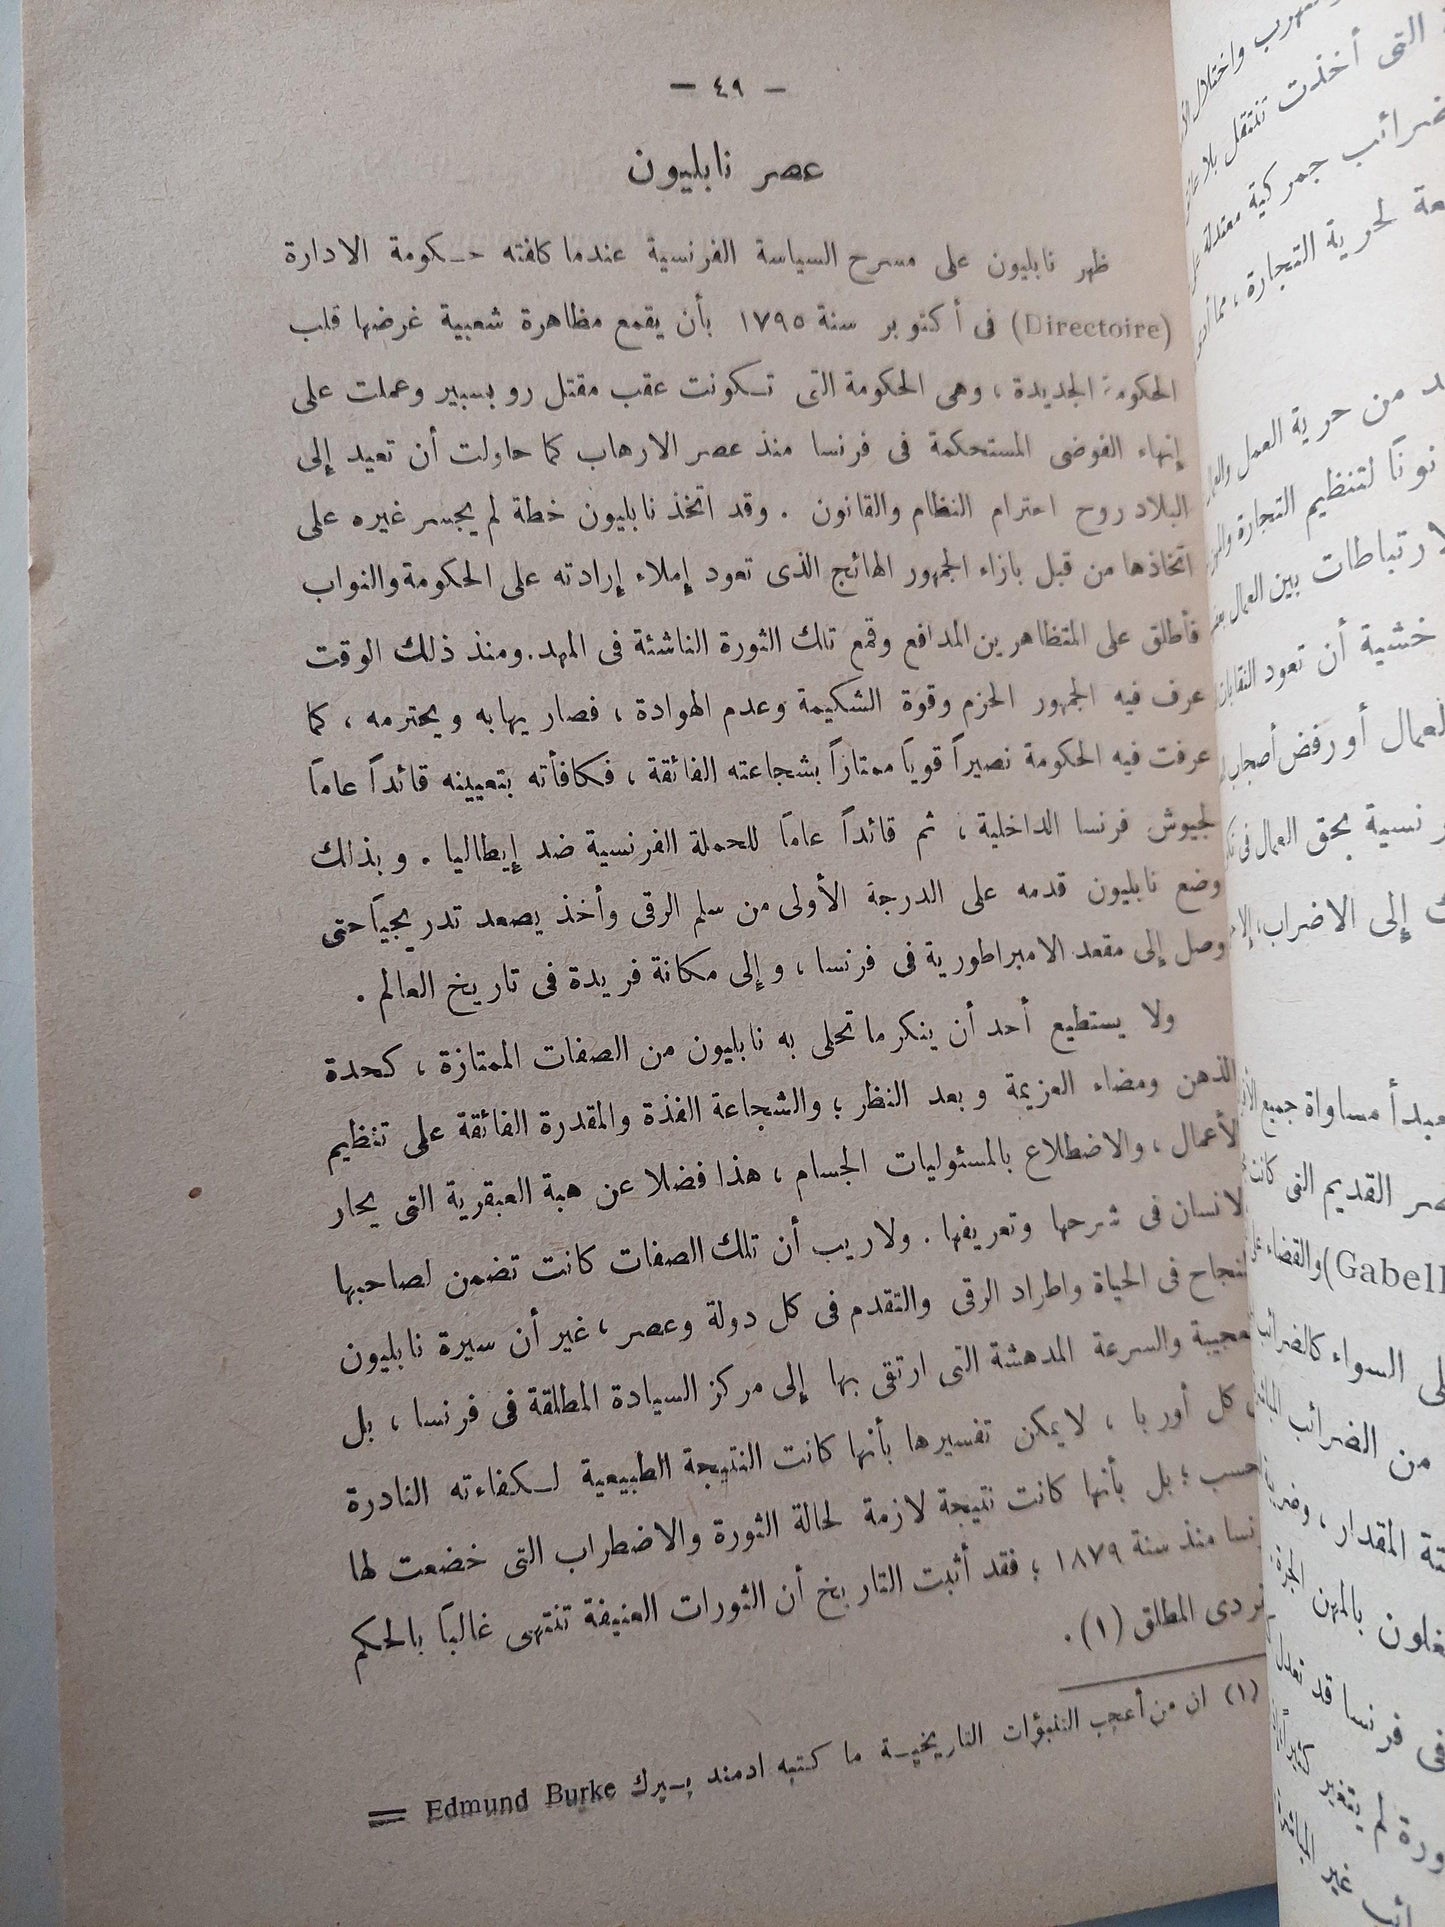 — ٤٩ —
عصر نابليون
ظهر نابليون على مسرح السياسة الفرنسية عندما كافته حكومة الادارة
(Directoire) فى أكتوبر سنة ١٧٩٥ بأن يقمع مظاهرة شعبية غرضها قلب
الحكومة الجديدة ، وهى الحكومة التى تكونت عقب مقتل روبسبير وعملت على
إنهاء الفوضى المستحكمة فى فرنسا منذ عصر الارهاب كما حاولت أن تعيد إلى
البلاد روح احترام النظام والقانون . وقد اتخذ نابليون خطة لم يجسر غيره على
اتخاذها من قبل بازاء الجمهور الهائج الذى تعود إملاء إرادته على الحكومة والنواب
فأطلق على المتظاهرين المدافع وقمع تلك الثورة الناشئة فى المهد. ومنذ ذلك الوقت
عرف فيه الجمهور الحزم وقوة الشكيمة وعدم الهوادة ، فصار يهابه ويحترمه ، كما
عرفت فيه الحكومة نصيراً قوياً ممتازاً بشجاعته الفائقة ، فكافأته بتعيينه قائداً عاماً
لجيوش فرنسا الداخلية ، ثم قائداً عاماً للحملة الفرنسية ضد إيطاليا . وبذلك
وضع نابليون قدمه على الدرجة الأولى من سلم الرقى وأخذ يصعد تدريجياً حتى
وصل إلى مقعد الامبراطورية فى فرنسا ، وإلى مكانة فريدة فى تاريخ العالم .
ولا يستطيع أحد أن ينكر ما تحلى به نابليون من الصفات الممتازة ، كحدة
الذهن ومضاء العزيمة وبعد النظر ؛ والشجاعة الفذة والمقدرة الفائقة على تنظيم
لأعمال ، والاضطلاع بالمسئوليات الجسام ، هذا فضلا عن هبة العبقرية التى يحار
لانسان فى شرحها وتعريفها . ولا ريب أن تلك الصفات كانت تضمن لصاحبها
لنجاح فى الحياة واطراد الرقى والتقدم فى كل دولة وعصر ، غير أن سيرة نابليون
لعجيبة والسرعة المدهشة التى ارتقى بها إلى مركز السيادة المطلقة فى فرنسا ، بل
كل أوربا ، لا يمكن تفسيرها بأنها كانت النتيجة الطبيعية لكفاءته النادرة
حسب ؛ بل بأنها كانت نتيجة لازمة لحالة الثورة والاضطراب التى خضعت لها
نسا منذ سنة ١٨٧٩ ؛ فقد أثبت التاريخ أن الثورات العنيفة تنتهى غالباً بالحكم
ردى المطلق (١) .
(١) ان من أعجب التنبؤات التاريخية ما كتبه ادمند بيرك Edmund Burke =
التى أخذت تنتقل بلا
ضرائب جمركية معتدلة
لحرية التجارة ، مما
من حرية العمل
لتنظيم التجارة
رتباطات بين العمال
خشية أن تعود النقابات
لعمال أو رفض أصحاب
نسية بحق العمال فى
إلى الاضراب ، إلا
مبدأ مساواة جميع
القديم التى كانت
Gabell) والقضاء
السواء كالضرائب
من الضرائب
المقدار ،
بالمهن
فى فرنسا قد
لم يتغير
غير